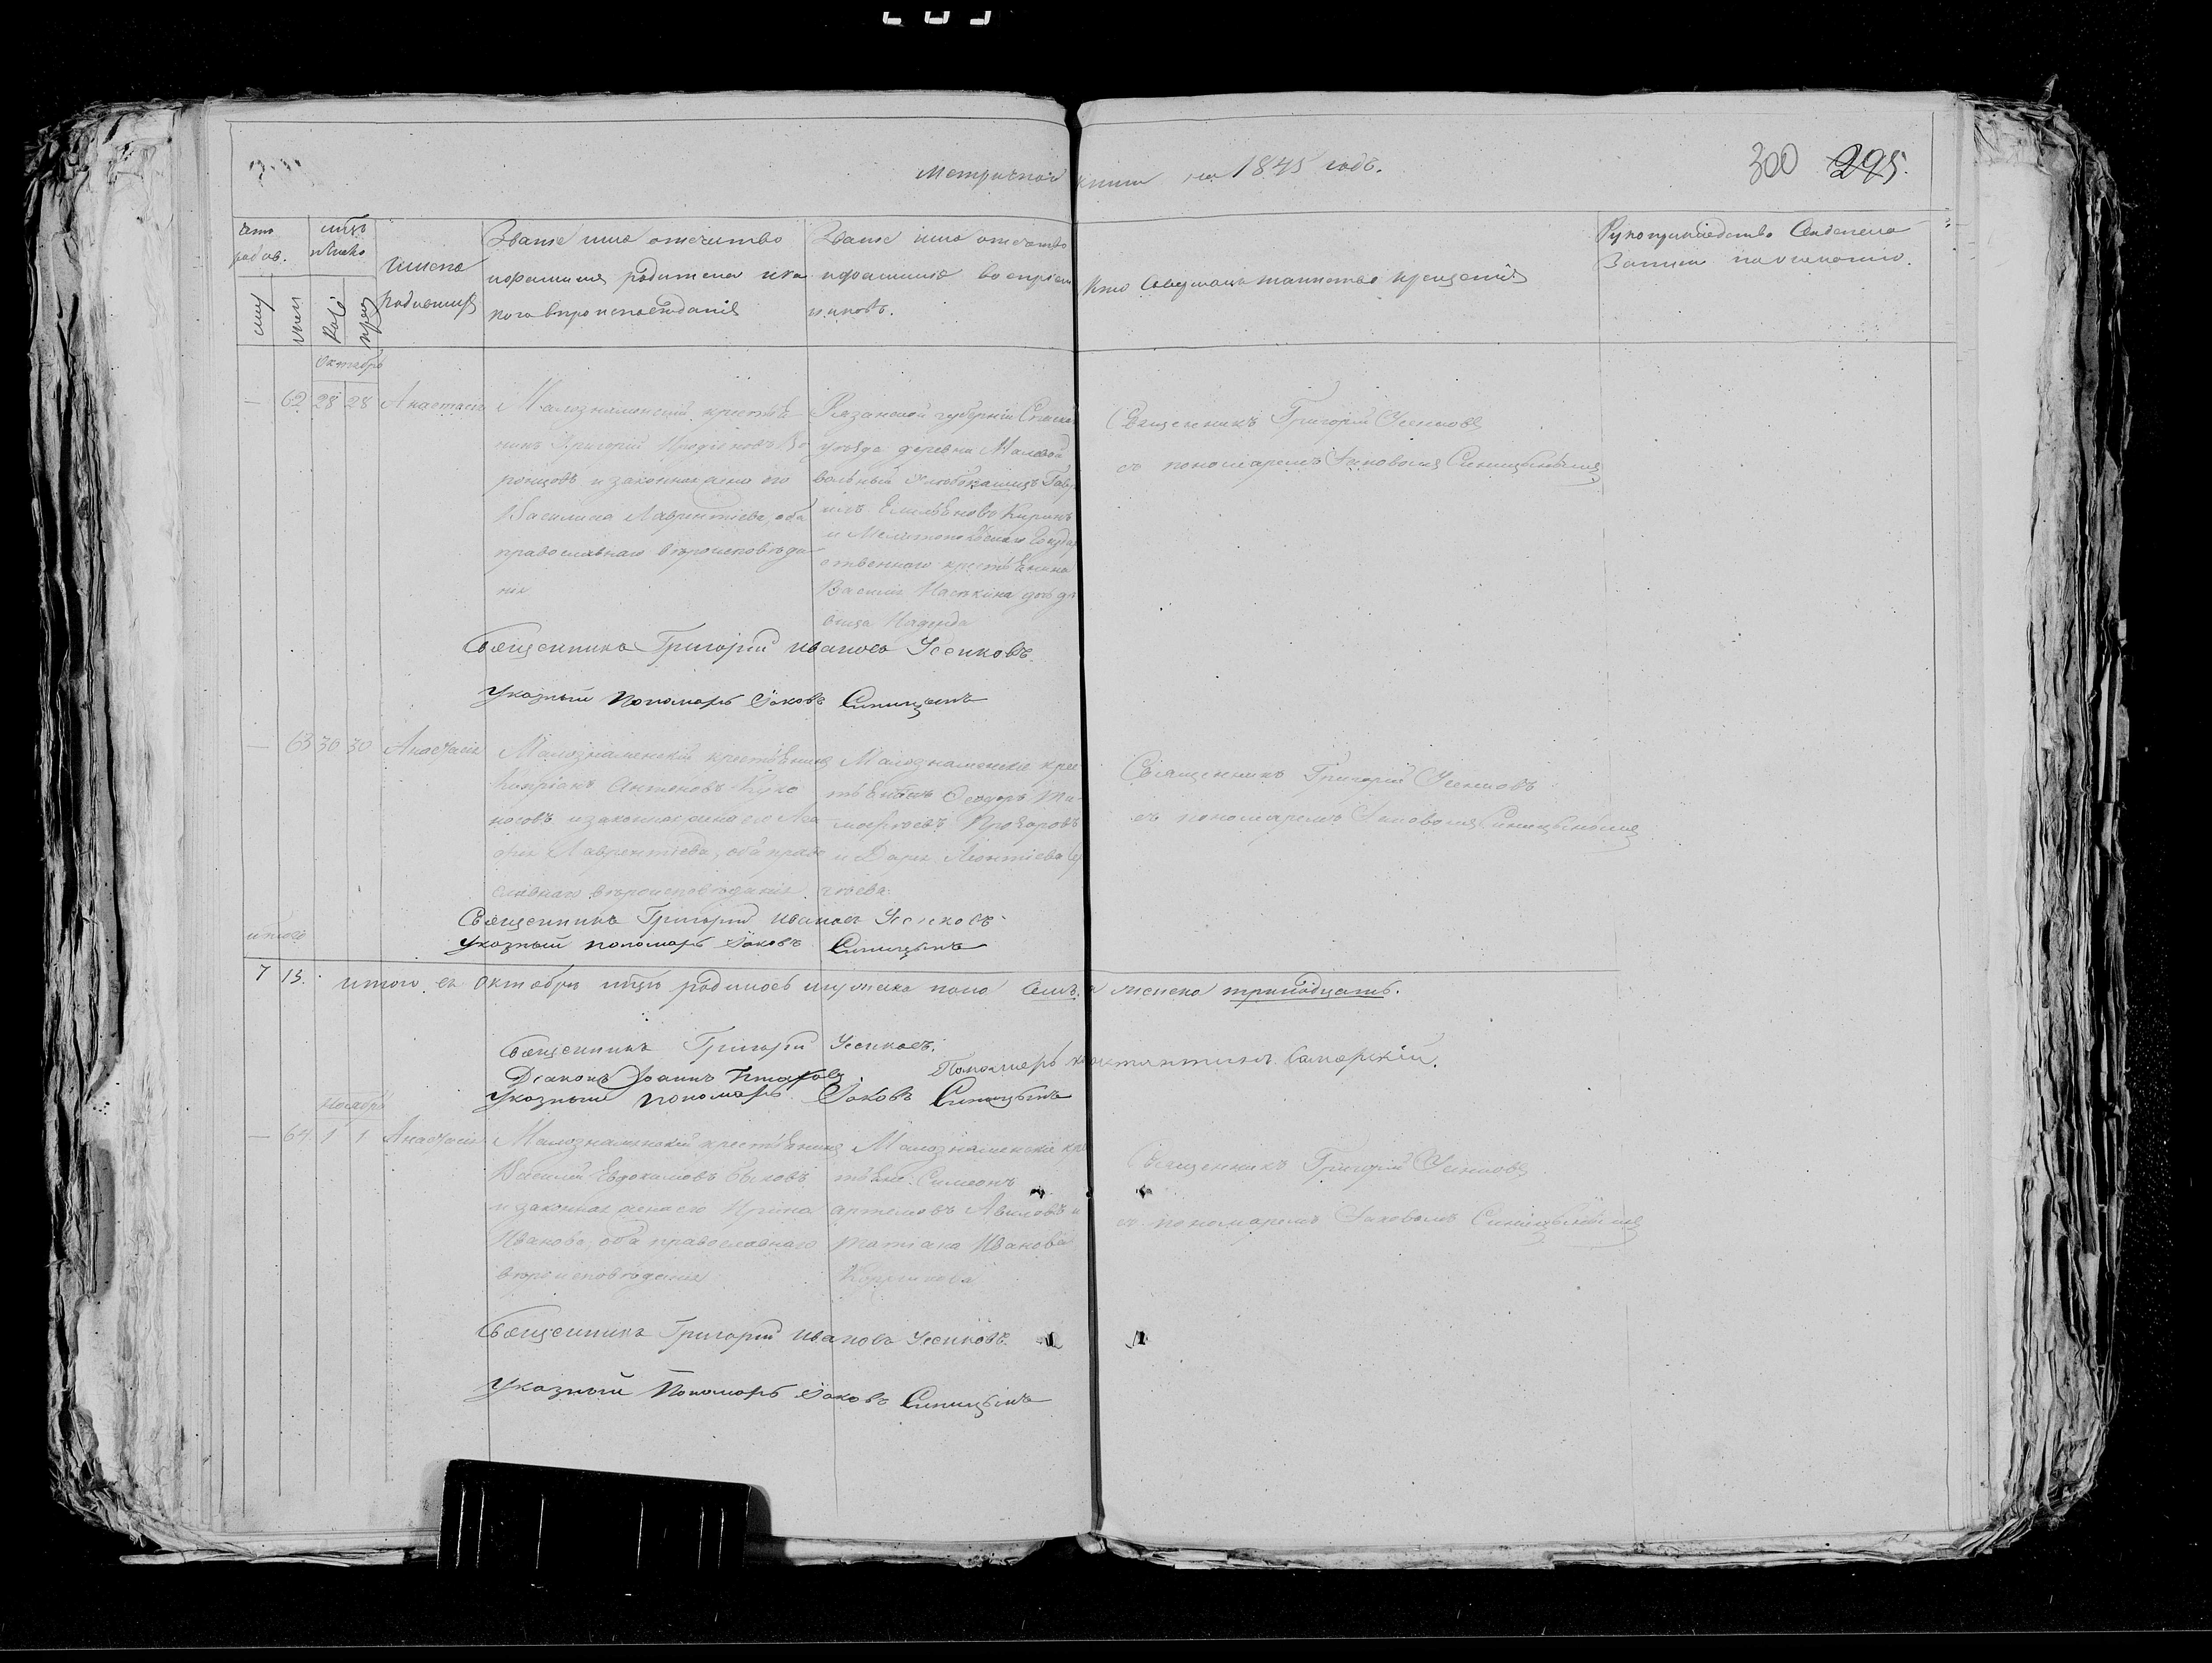 Метричной книги на 1845 годъ.
300 295.
Счетъ родив.
мѣсяц число
Имена родившихся
Званіе имя отечество
и фамилія родителей и ка
кого вѣроисповѣданія
Званіе имя отечество
и фамилія воспріем
никовъ.
Кто совершалъ таинство крещенія
Рукоприкладство свѣдетелей
записи по желанію.
муж
жен
рож
крещ
Октябрь
— 62 28 28 Анастасія
Малознаменскій крестья
нинъ Григорій
и законная жена его
Василиса Лаврентіева, оба
православнаго вѣроисповѣда
нія
Рязанской губерніи Спаск
уѣзда деревни Маловой
вольный хлебопашецъ Гавр
илъ Емельяновъ Киринъ
и Мелитопольскаго Государ
ственнаго крестьянина
Василія дочь дѣ
вица Надежда
Священникъ Григорій Усенковъ
съ пономаремъ Іаковомъ Синицынымъ
Священникъ Григорій Ивановъ Усенковъ.
Указный Пономарь Іаковъ Синицынъ
— 63 30 30 Анастасія
Малознаменскій крестьянинъ
Кипріанъ Антоновъ Куко
носовъ и законная жена его Ага
фія Лаврентіева, оба право
славнаго вѣроисповѣданія
Малознаменскіе крес
тьянинъ Ѳеодоръ Ти
мофѣевъ Прохоровъ
и Дарья Леонтіева
Священникъ Григорій Усенковъ
съ пономаремъ Іаковомъ Синицынымъ
Священникъ Григорій Ивановъ Усенковъ
Указный пономарь Іаковъ Синицынъ
итого
7 13.
Итого въ Октябрѣ мѣсяцѣ родилось мужеска пола семь, а женска тринадцать.
Священникъ Григорій Усенковъ.
Діаконъ Іоаннъ
Пономарь Константинъ Самарскій.
Указный пономарь Іаковъ Синицынъ
Ноябрь
— 64 1 1 Анастасія
Малознаменскій крестьянинъ
Василій Евдокимовъ Быковъ
и законная жена его Ирина
Иванова, оба православнаго
вѣроисповѣданія
Малознаменскіе кре
стьяне Симеонъ
Артемовъ Авиловъ и
Татіана Иванова
Священникъ Григорій Усенковъ
съ пономаремъ Іаковомъ Синицынымъ
Священникъ Григорій Ивановъ Усенковъ.
Указный Пономарь Іаковъ Синицынъ